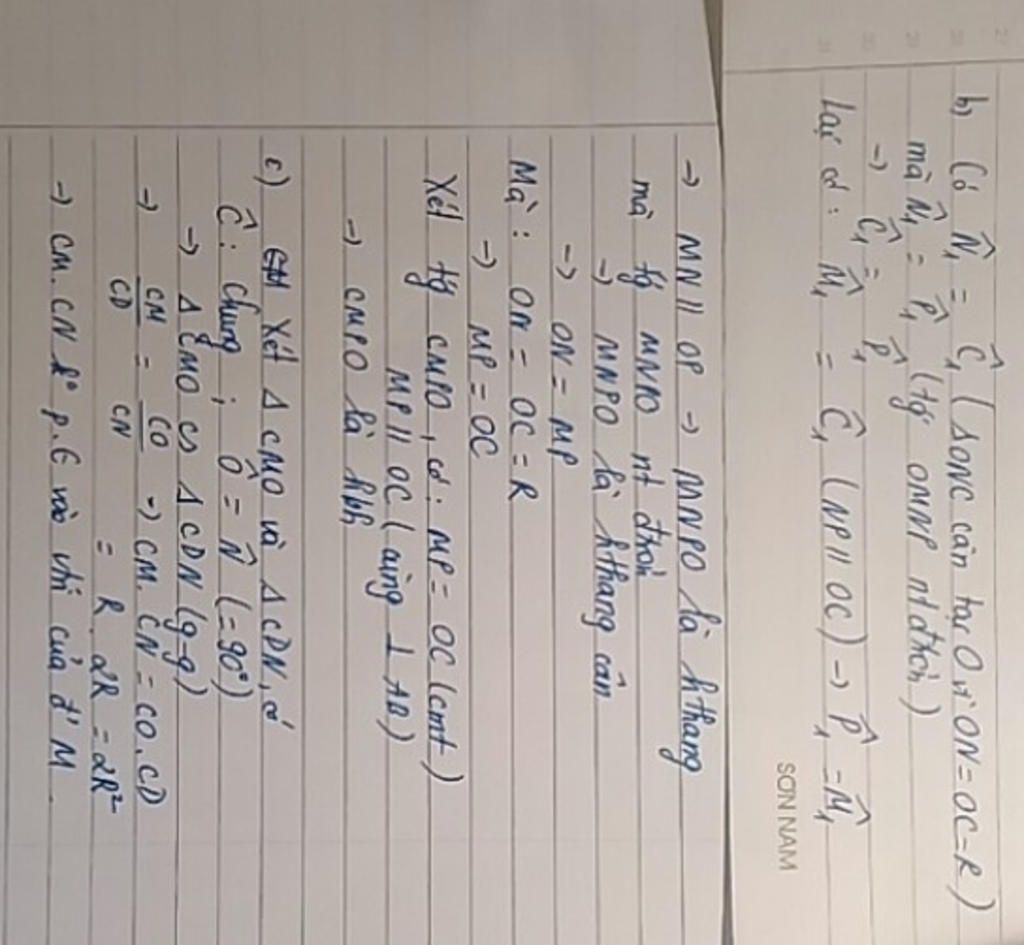 b) Có N̂₁ = Ĉ₁ (ΔONC cân tại O vì ON = OC = R)
mà N̂₁ = P̂₁ (tg OMNP nt đtròn)
→ Ĉ₁ = P̂₁
Lại có: M̂₁ = Ĉ₁ (NP // OC) → P̂₁ = M̂₁
SƠN NAM
→ MN // OP → MNPO là hthang
mà tg MNPO nt đtròn
→ MNPO là hthang cân
→ ON = MP
Mà: ON = OC = R
→ MP = OC
Xét tg CMPO, có: MP = OC (cmt)
MP // OC (cùng ⊥ AB)
→ CMPO là hbh
c) Xét Δ CMO và Δ CDN, có
Ĉ: chung ; Ô = N̂ (= 90°)
→ Δ CMO ∽ Δ CDN (g-g)
→ CM/CD = CO/CN → CM. CN = CO. CD
= R. 2R = 2R²
→ CM. CN k° p. ∈ vào vtrí của đ' M.